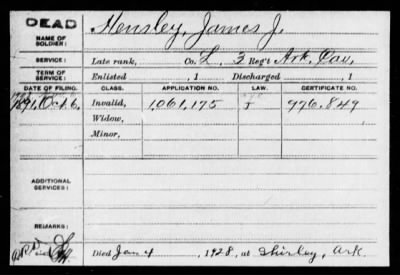 DEAD
NAME OF SOLDIER: Hensley, James J.
SERVICE: Late rank, Co. L, 3 Reg't Ark. Cav.
TERM OF SERVICE: Enlisted , 1 Discharged , 1
DATE OF FILING. CLASS. APPLICATION NO. LAW. CERTIFICATE NO.
1891, Oct. 6. Invalid, 1.061.175 976.849
Widow,
Minor,
ADDITIONAL SERVICES:
REMARKS:
Died Jan 4, 1928, at Shirley, Ark.